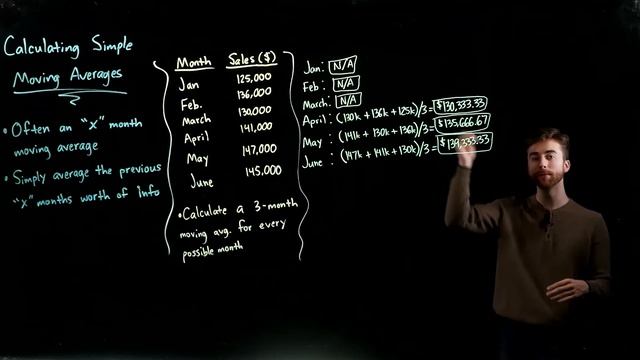 Calculating Simple
Moving Averages
• Often an "x" month
moving average
• Simply average the previous
"x" months worth of Info
Month Sales ($)
Jan 125,000
Feb. 136,000
March 130,000
April 141,000
May 147,000
June 145,000
• Calculate a 3-month
moving avg. for every
possible month
Jan: N/A
Feb: N/A
March: N/A
April: (130k + 136k + 125k)/3 = $130,333.33
May: (141k + 130k + 136k)/3 = $135,666.67
June: (147k + 141k + 130k)/3 = $139,333.33